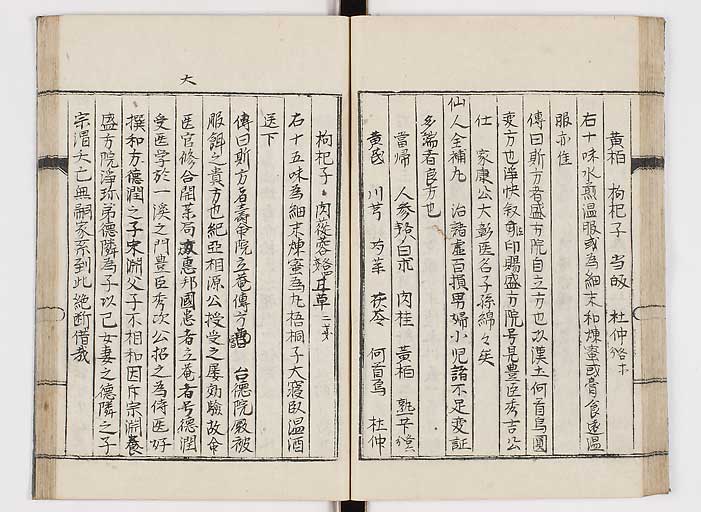 黄柏 枸杞子 当皈 杜仲
右十味水煎温服或為細末和煉蜜或膏食遠温
服亦佳
傳曰斯方者盛方院自立方也以漢土何首烏圓
変方也浄快叙法印賜盛方院号見豊臣秀吉公
仕 家康公大彰医名子孫綿々矣
仙人全補丸 治諸虚百損男婦小児諸不足変証
多端者良方也
當帰 人参 白朮 肉桂 黄柏 熟苄
黄芪 川芎 芍薬 茯苓 何首烏 杜仲
枸杞子 肉蓯蓉 甘草
右十五味為細末煉蜜為丸梧桐子大寝臥温酒
送下
傳曰斯方者壽命院立菴傳方 台德院殿被
服餌之貴方也紀亞相源公授受之屡効驗故命
医官修合開薬局惠邦國患者立菴者号德潤
受医学於一溪之門豊臣秀次公招之為侍医好
撰和方德潤之子宗淵父子不相和因斥宗淵養
盛方院淨珎弟德隣為子以己女妻之德隣之子
宗渭夭亡無嗣家系到此絶断惜哉
大